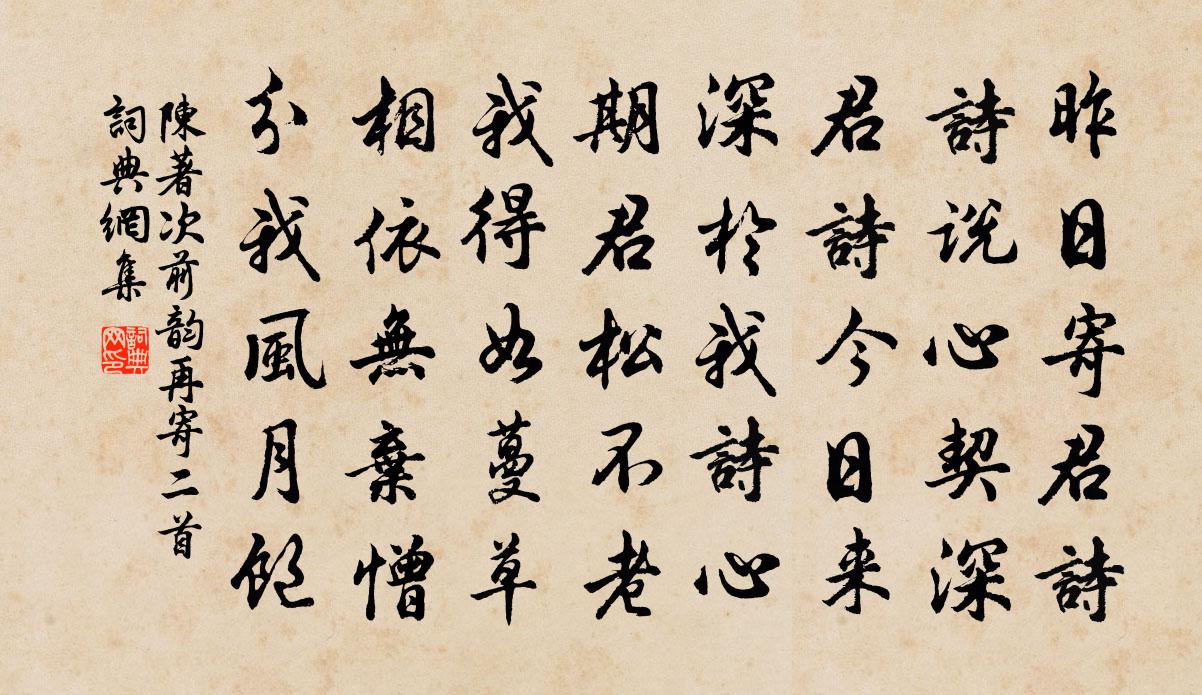 昨日寄君詩
詩说心契深
君詩今日来
深於我詩心
期君松不老
我得如蔓草
相依無棄憎
分我風月飽
陳著次前韵再寄二首
詞典網集
詞典
网印